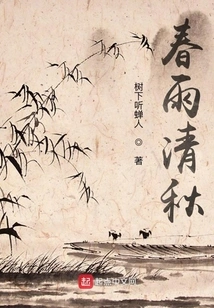 春雨清秋
树下听蝉人 ◎ 著
起点中文网